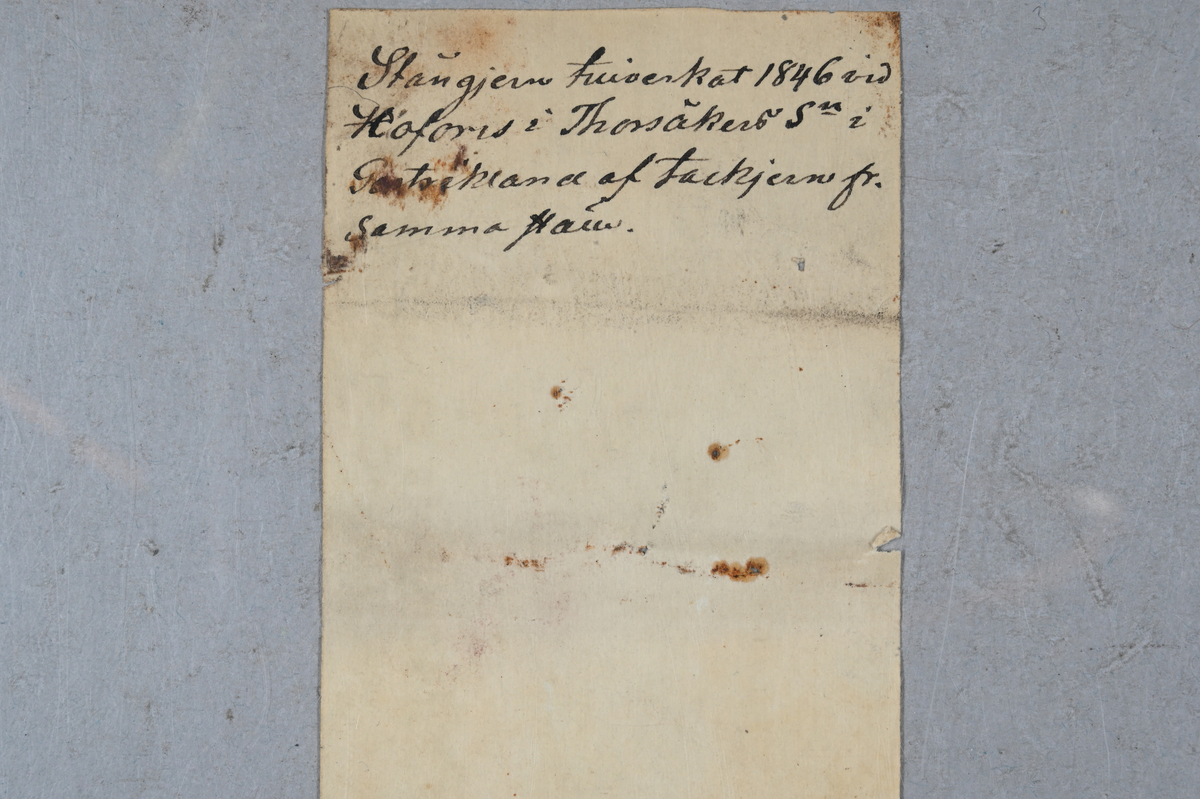 Stångjern tillverkat 1846 vid
Hofors i Thorsåkers Sn i
Gestrikland af tackjern fr.
samma